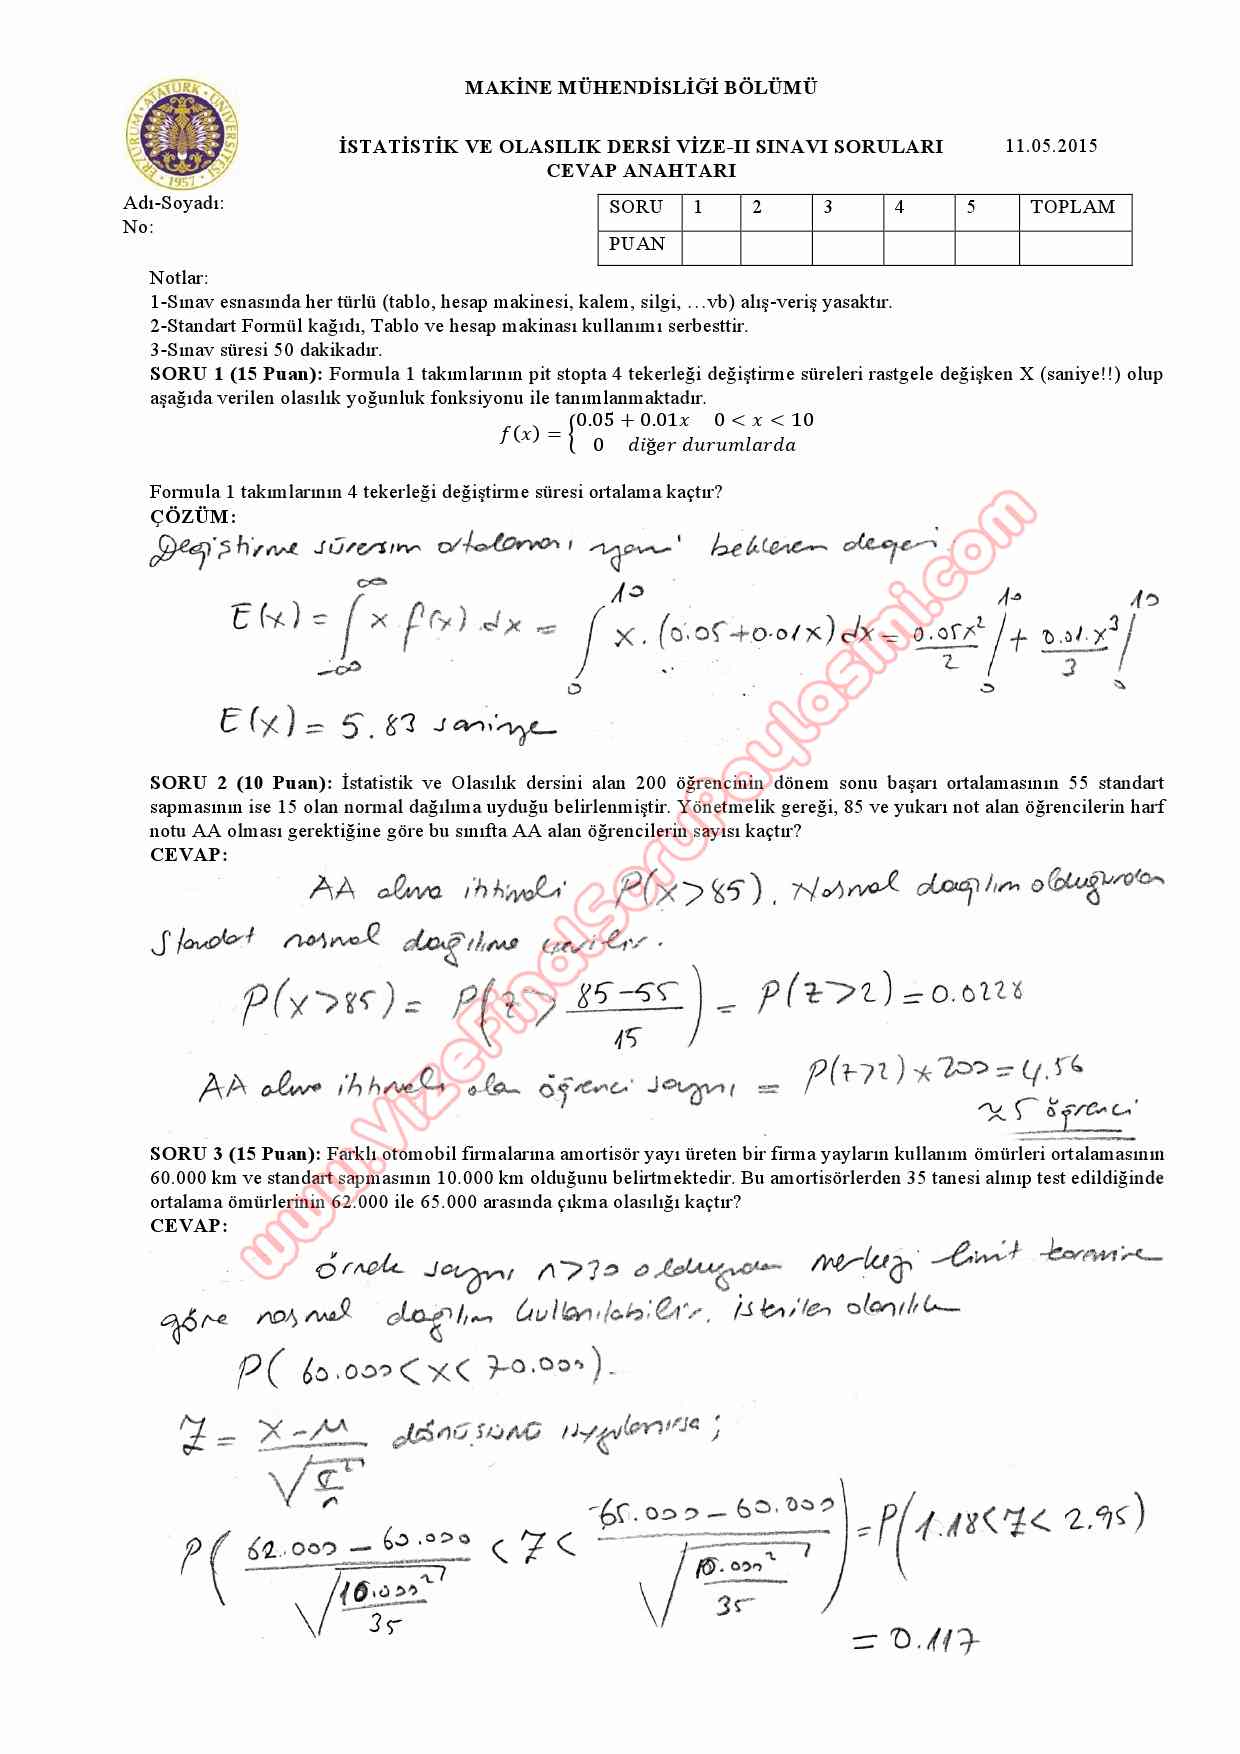 MAKİNE MÜHENDİSLİĞİ BÖLÜMÜ
ERZURUM ATATÜRK ÜNİVERSİTESİ
1957
İSTATİSTİK VE OLASILIK DERSİ VİZE-II SINAVI SORULARI 11.05.2015
CEVAP ANAHTARI
Adı-Soyadı:
No:
SORU 1 2 3 4 5 TOPLAM
PUAN
Notlar:
1-Sınav esnasında her türlü (tablo, hesap makinesi, kalem, silgi, …vb) alış-veriş yasaktır.
2-Standart Formül kağıdı, Tablo ve hesap makinası kullanımı serbesttir.
3-Sınav süresi 50 dakikadır.
SORU 1 (15 Puan): Formula 1 takımlarının pit stopta 4 tekerleği değiştirme süreleri rastgele değişken X (saniye!!) olup
aşağıda verilen olasılık yoğunluk fonksiyonu ile tanımlanmaktadır.
f(x) = { 0.05 + 0.01x 0 < x < 10
0 diğer durumlarda
Formula 1 takımlarının 4 tekerleği değiştirme süresi ortalama kaçtır?
ÇÖZÜM:
Değiştirme süresinin ortalaması yani beklenen değeri
E(x) = ∫_{-∞}^{∞} x f(x) dx = ∫_0^10 x.(0.05+0.01x)dx = 0.05x²/2 |_0^10 + 0.01.x³/3 |_0^10
E(x) = 5.83 saniye
SORU 2 (10 Puan): İstatistik ve Olasılık dersini alan 200 öğrencinin dönem sonu başarı ortalamasının 55 standart
sapmasının ise 15 olan normal dağılıma uyduğu belirlenmiştir. Yönetmelik gereği, 85 ve yukarı not alan öğrencilerin harf
notu AA olması gerektiğine göre bu sınıfta AA alan öğrencilerin sayısı kaçtır?
CEVAP:
AA alma ihtimali P(x>85). Normal dağılım olduğundan
Standart normal dağılıma çevrilir.
P(x>85) = P(z > (85-55)/15) = P(z>2) = 0.0228
AA alma ihtimali olan öğrenci sayısı = P(z>2) * 200 = 4.56
≈ 5 öğrenci
SORU 3 (15 Puan): Farklı otomobil firmalarına amortisör yayı üreten bir firma yayların kullanım ömürleri ortalamasının
60.000 km ve standart sapmasının 10.000 km olduğunu belirtmektedir. Bu amortisörlerden 35 tanesi alınıp test edildiğinde
ortalama ömürlerinin 62.000 ile 65.000 arasında çıkma olasılığı kaçtır?
CEVAP:
Örnek sayısı n>30 olduğundan merkezi limit teoremine
göre normal dağılım kullanılabilir. istenilen olasılık
P( 60.000 < x < 70.000).
Z = (x-μ)/√(σ²/n) dönüşümü uygulanırsa;
P( (62.000 - 60.000)/√(10.000²/35) < Z < (65.000 - 60.000)/√(10.000²/35) ) = P(1.18 < Z < 2.95)
= 0.117
www.VizeFinalSoruPaylasimi.com